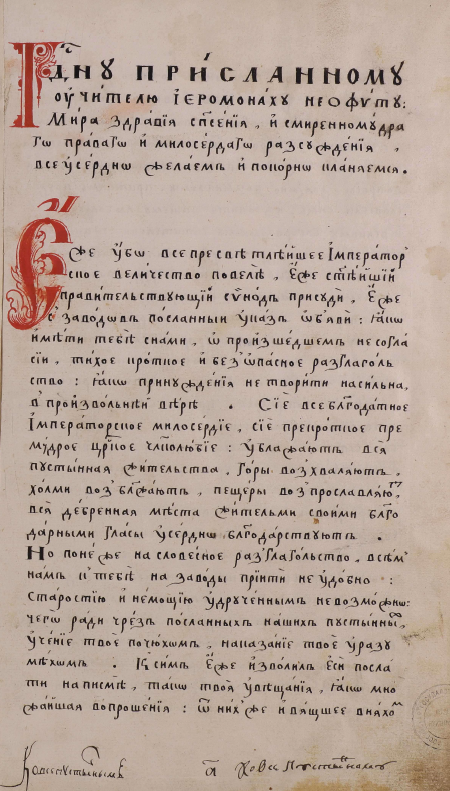 Гдну присланному
оучителю іеромонаху неофѵту:
Мира здравїя спсенїя, и смиренномудра
гѡ праваго и милосердагѡ разсужденїя,
все усерднѡ желаемъ и покорнѡ кланяемся.
Еже убѡ все пресвѣтлѣйшее Імператор
ское величество повелѣ, Еже стѣйшїй
правительствующїй сѵнодъ присуди, Еже
с заводовъ посланный указъ обяви: какѡ
имѣти тебѣ снами, ѡ произшедшемъ несогла
сїи, тихое кроткое и без ѡпасное разглаголь
ство: какѡ принужденїя не творити насильна,
в произвольнѣй вѣрѣ . Сїе все благодатное
Імператорское милосердїе, сїе прекроткое пре
мудрое црское члколюбїе: ублажаютъ вся
пустынная жительства, горы возхваляютъ,
холми возблжаютъ, пещеры возпрославляютъ,
вся дебренная мѣста жительми своими благо
дарными гласы усерднѡ благодарствуютъ .
Но понеже на словесное разглагольство, всѣм
намъ к тебѣ на заводы прїити не удобно :
старостїю и немощїю удрученнымъ невозможнѡ:
чего ради чрезъ посланныхъ нашихъ пустынных
ученїе твое почюхомъ, наказанїе твое уразу
мѣхомъ . Къ симъ Еже изволилъ еси посла
ти на писмѣ, такѡ твоя увѣщанїя, какѡ мно
жайшая вопрошенїя : ѿ нихже и вящшее вняхом